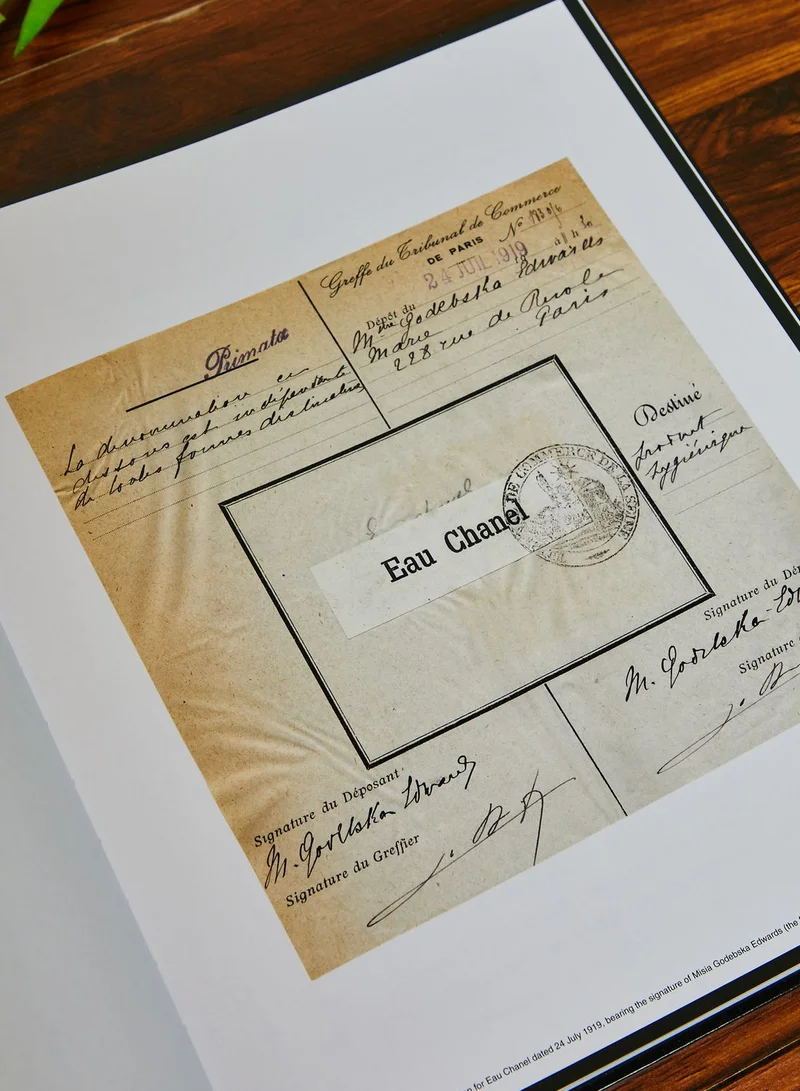 Greffe du Tribunal de Commerce
DE PARIS
24 JUIL 1919
N°
Dépôt du
Mme Godebska Edwards
Marie
228 rue de Rivole
Paris
Primata
La dénomination ci
dessous est indépendante
de toutes formes distinctives
Destiné
produit
hygiénique
Eau Chanel
DE COMMERCE DE LA SEINE
Signature du Dép
M. Godebska Edw
Signature
Signature du Déposant
M. Godebska Edwards
Signature du Greffier
n for Eau Chanel dated 24 July 1919, bearing the signature of Misia Godebska Edwards (the